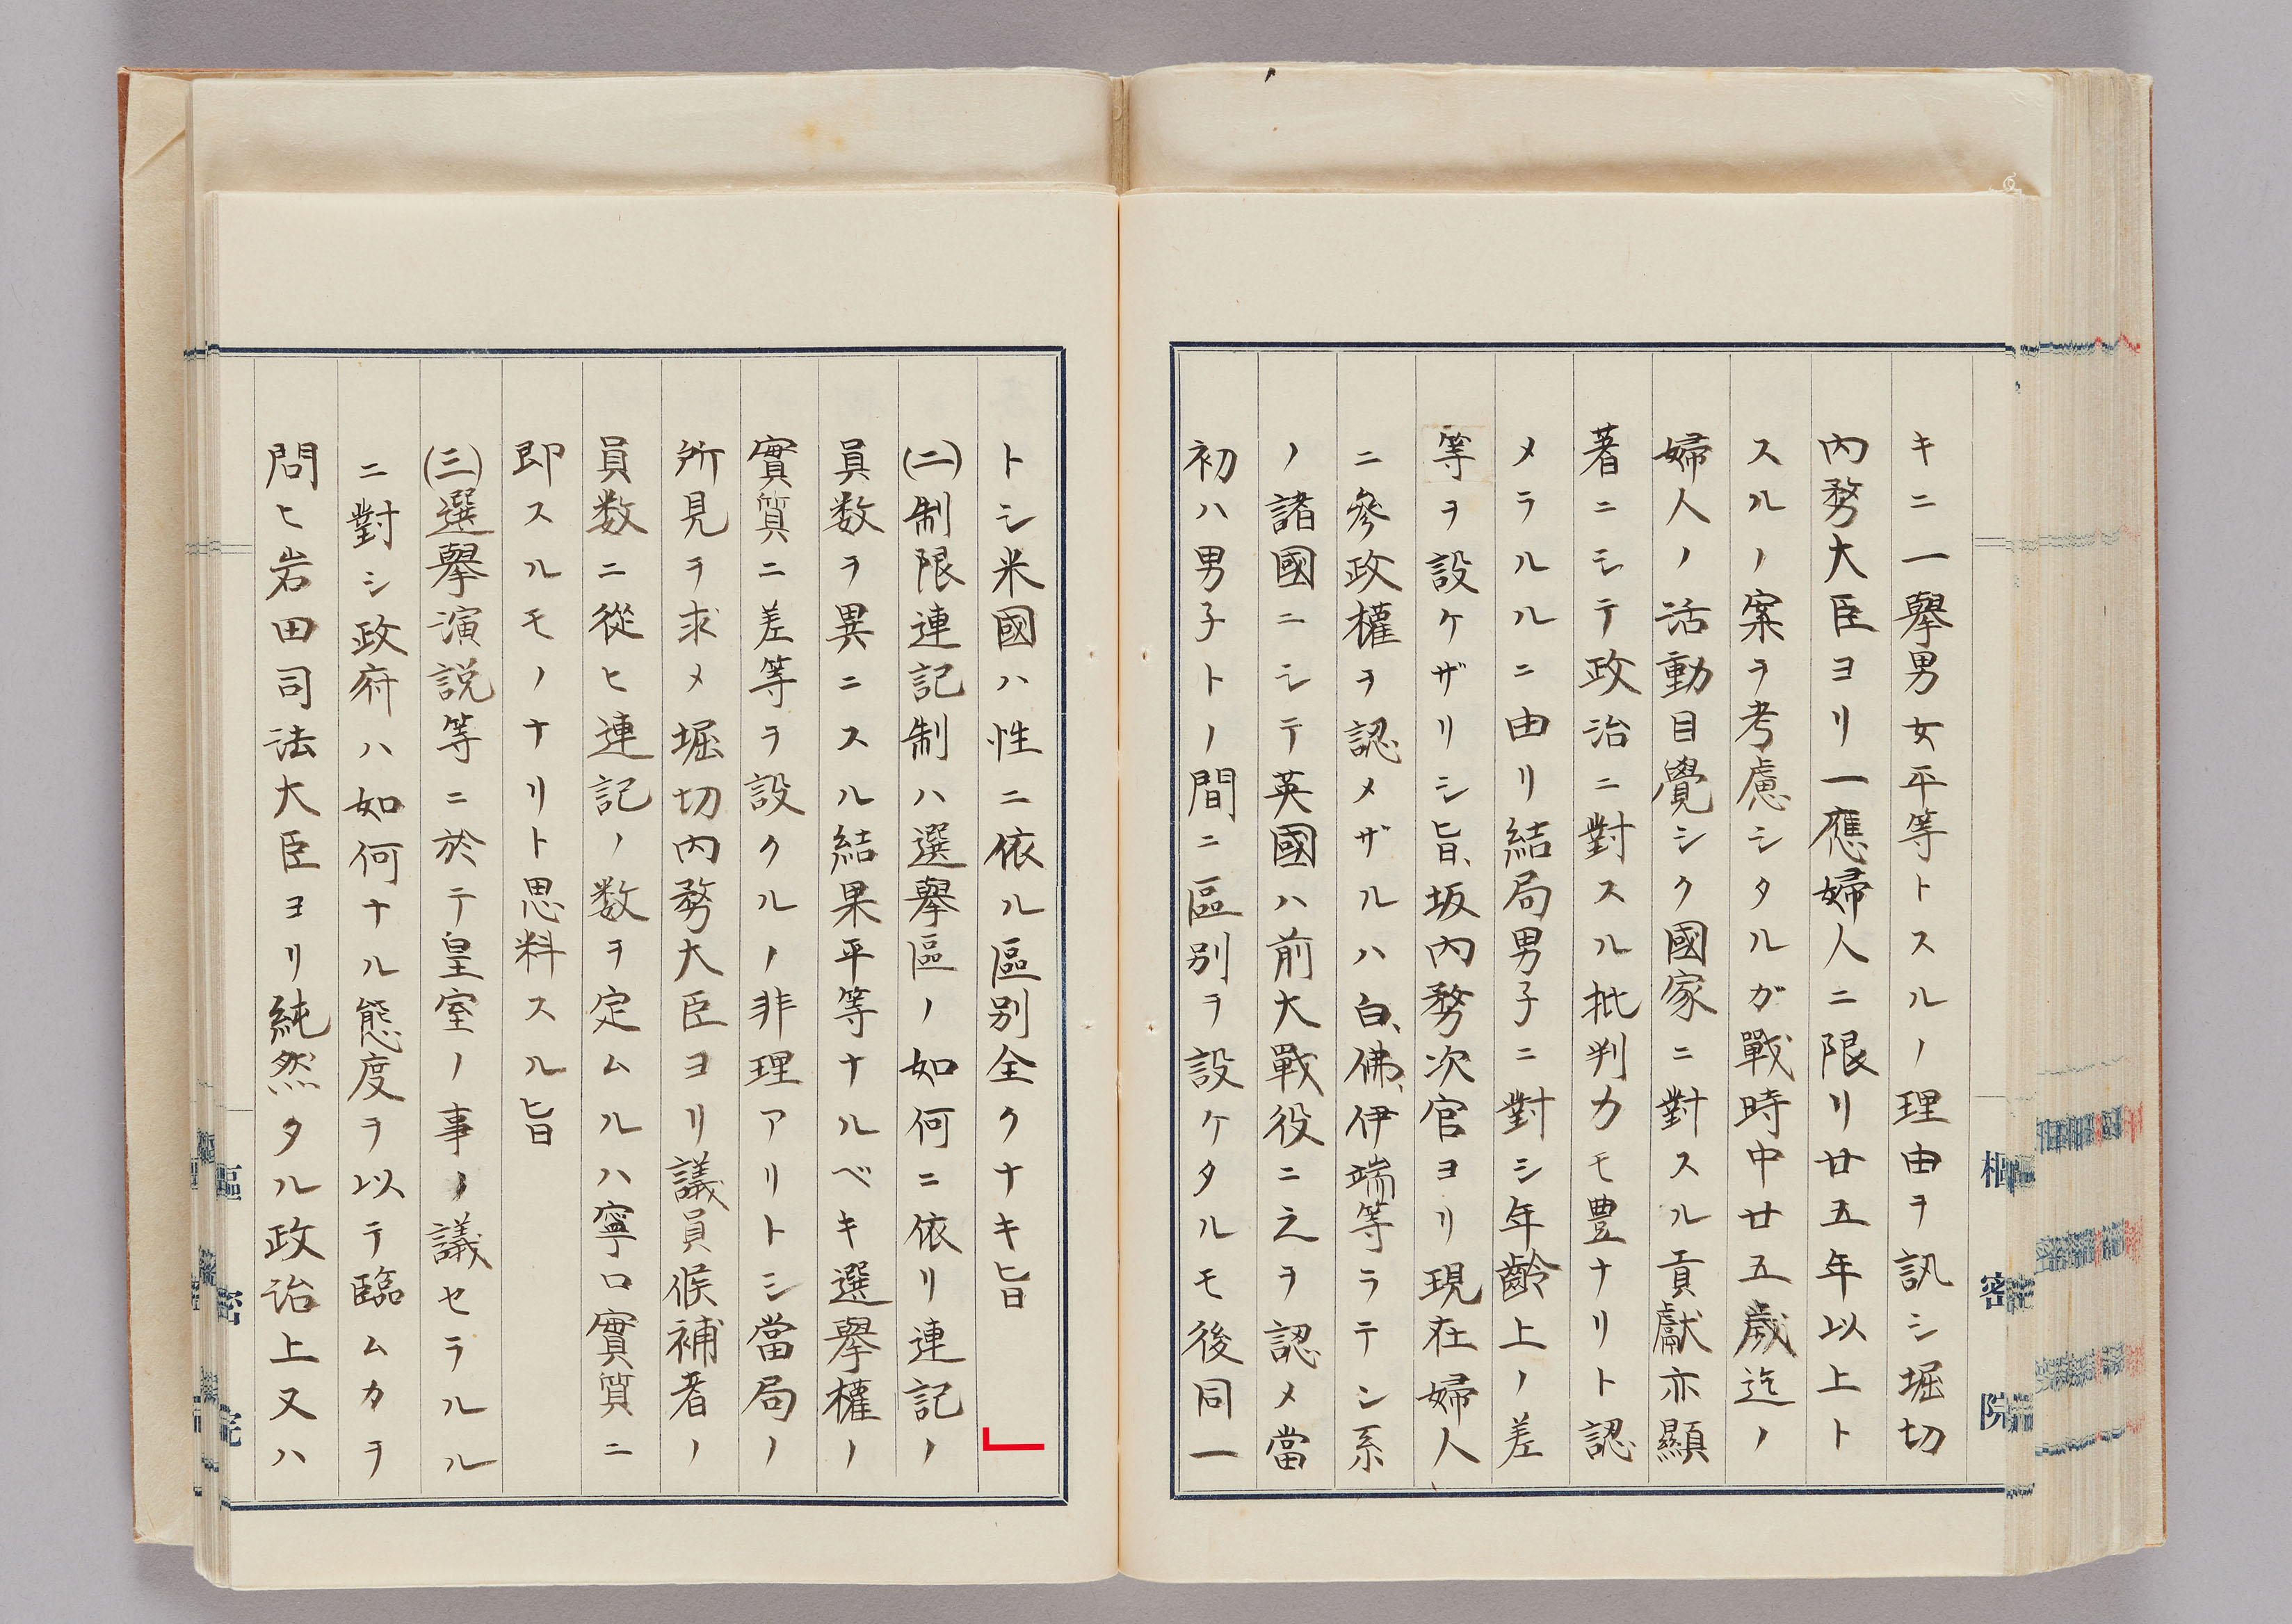 キニ一擧男女平等トスルノ理由ヲ訊シ堀切
内務大臣ヨリ一應婦人ニ限リ廿五年以上ト
スルノ案ヲ考慮シタルガ戰時中廿五歳迄ノ
婦人ノ活動目覺シク國家ニ對スル貢獻亦顯
著ニシテ政治ニ對スル批判力モ豊ナリト認
メラルルニ由リ結局男子ニ對シ年齡上ノ差
等ヲ設ケザリシ旨、坂内務次官ヨリ現在婦人
ニ參政權ヲ認メザルハ白、佛、伊、端等ラテン系
ノ諸國ニシテ英國ハ前大戰役ニ之ヲ認メ當
初ハ男子トノ間ニ區別ヲ設ケタルモ後同一
樞密院
トシ米國ハ性ニ依ル區別全クナキ旨
(二)制限連記制ハ選擧區ノ如何ニ依リ連記ノ
員数ヲ異ニスル結果平等ナルベキ選擧權ノ
實質ニ差等ヲ設クルノ非理アリトシ當局ノ
所見ヲ求メ堀切内務大臣ヨリ議員候補者ノ
員数ニ從ヒ連記ノ数ヲ定ムルハ寧ロ實質ニ
即スルモノナリト思料スル旨
(三)選擧演説等ニ於テ皇室ノ事ノ議セラルル
ニ對シ政府ハ如何ナル態度ヲ以テ臨ムカヲ
問ヒ岩田司法大臣ヨリ純然タル政治上又ハ
樞密院